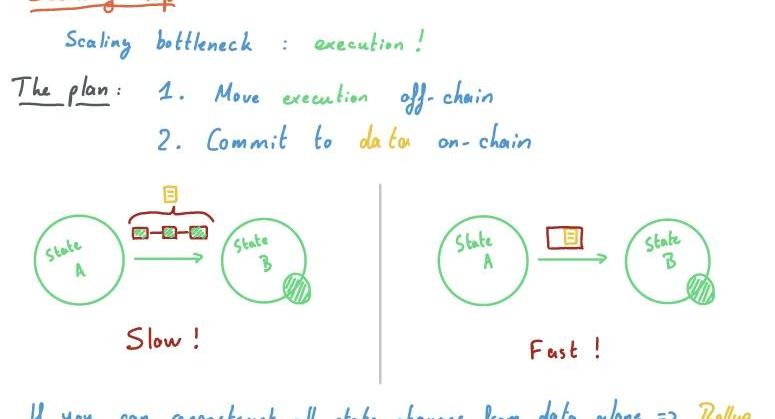 Scaling bottleneck : execution !
The plan : 1. Move execution off-chain
2. Commit to data on-chain
State A
State B
State A
State B
Slow !
Fast !
If you can reconstruct all state changes from data alone => Rollup